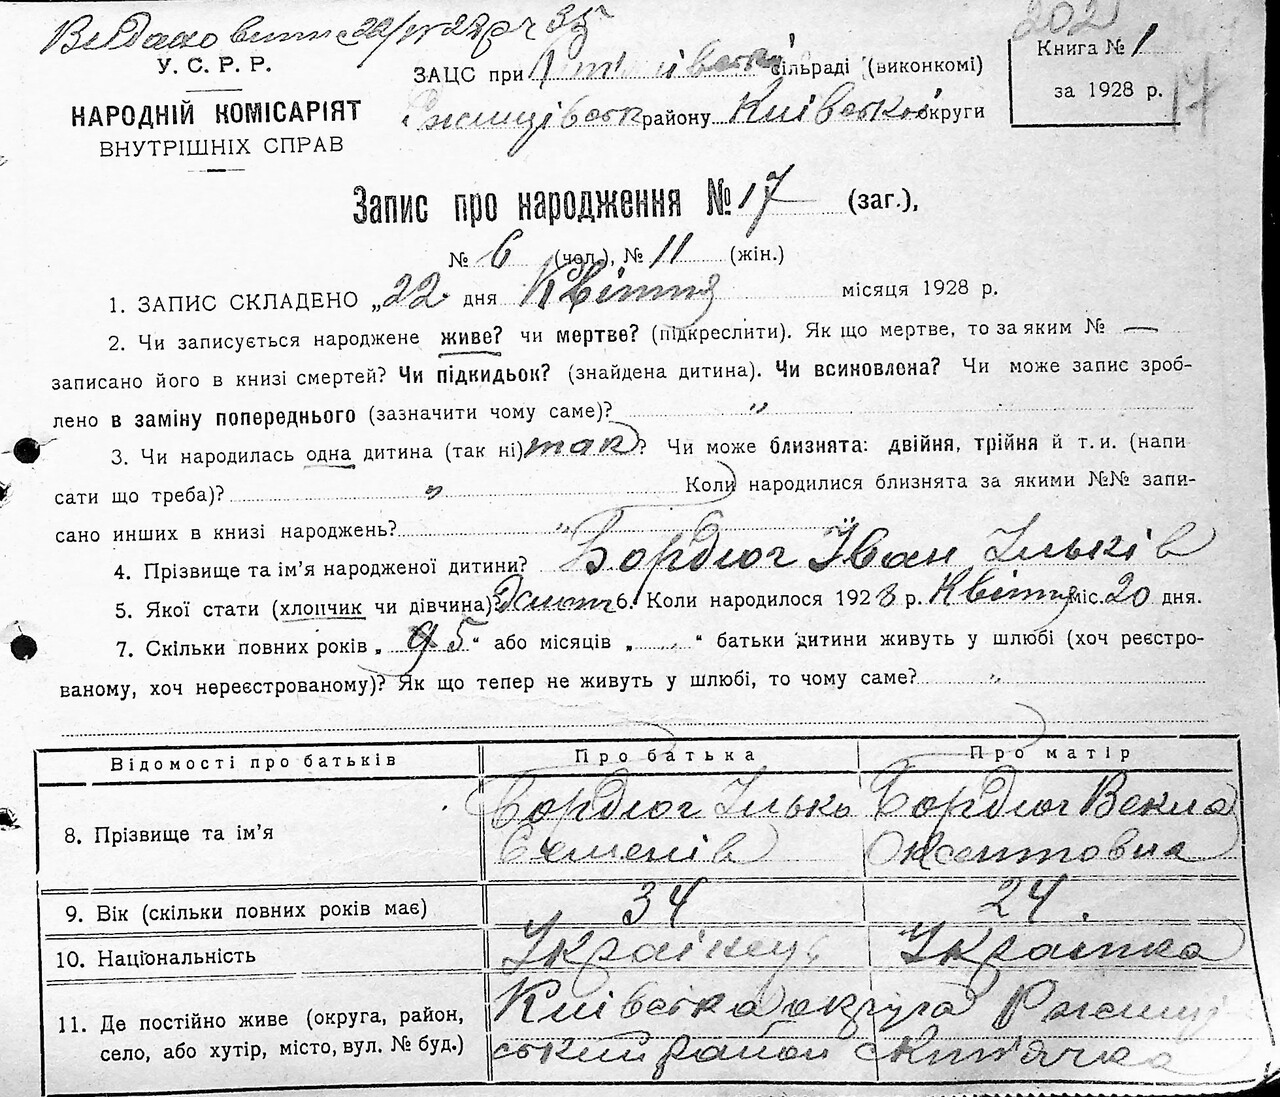 Видано витяг 22/IV 28 р ч 35
202
У. С. Р. Р.
НАРОДНІЙ КОМІСАРІЯТ
ВНУТРІШНІХ СПРАВ
ЗАЦС при сільраді (виконкомі)
Ржищівськ району Київської округи
Книга № 1
за 1928 р.
17
Запис про народження № 17 (заг.),
№ 6 (чол.), № 11 (жін.)
1. ЗАПИС СКЛАДЕНО „22" дня Квітня місяця 1928 р.
2. Чи записується народжене живе? чи мертве? (підкреслити). Як що мертве, то за яким № —
записано його в книзі смертей? Чи підкидьок? (знайдена дитина). Чи всиновлена? Чи може запис зроб-
лено в заміну попереднього (зазначити чому саме)? "
3. Чи народилась одна дитина (так ні) так? Чи може близнята: двійня, трійня й т. и. (напи
сати що треба)? " Коли народилися близнята за якими №№ запи-
сано инших в книзі народжень? "
4. Прізвище та ім'я народженої дитини? Бордюг Іван Ільків
5. Якої стати (хлопчик чи дівчина)? 6. Коли народилося 1928 р. Квітня міс. 20 дня.
7. Скільки повних років „ 5 " або місяців „ " батьки дитини живуть у шлюбі (хоч реєстро-
ваному, хоч нереєстрованому)? Як що тепер не живуть у шлюбі, то чому саме? "
Відомості про батьків Про батька Про матір
8. Прізвище та ім'я Бордюг Ілько Бордюг Векла
Семенів Оксентовна
9. Вік (скільки повних років має) 34 24.
10. Національність Українець Українка
11. Де постійно живе (округа, район, Київська округа Ржищів-
село, або хутір, місто, вул. № буд.) ський район